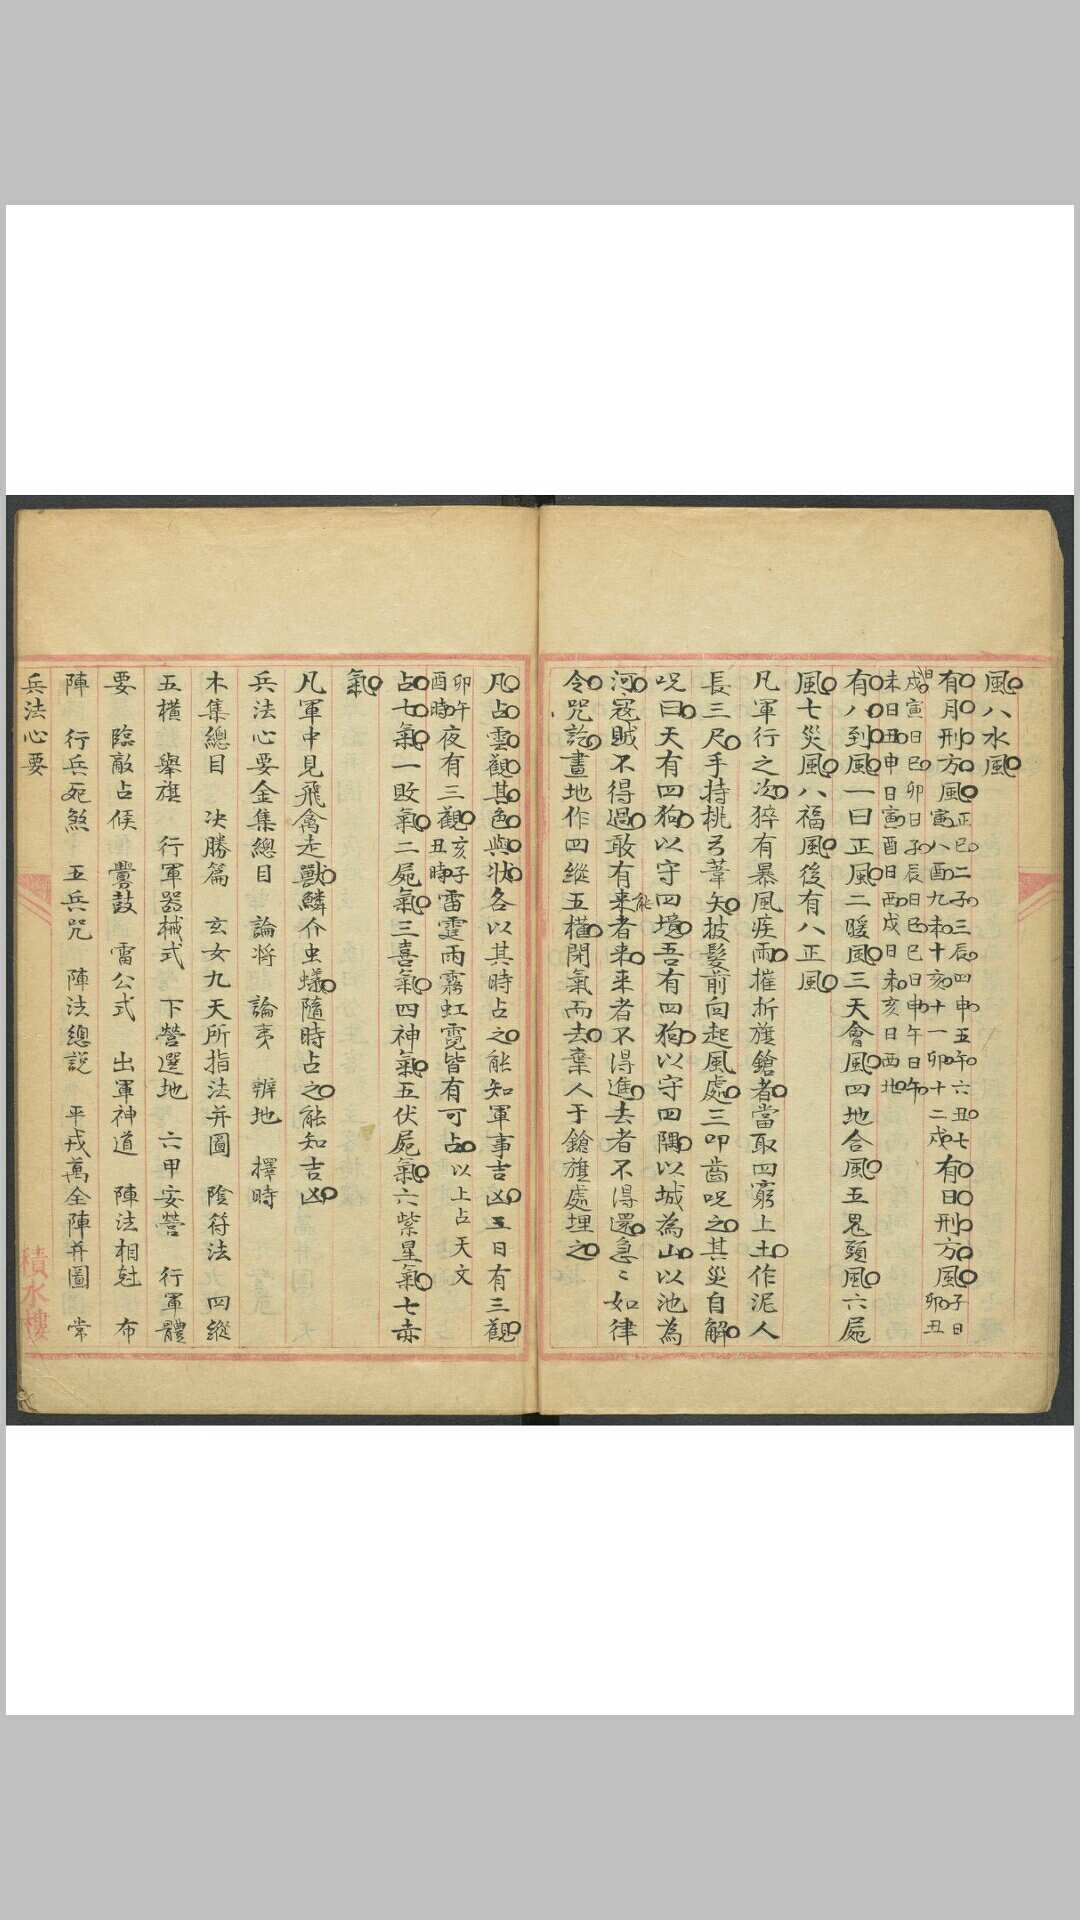 風八水風
有月刑方風正巳二子三辰四申五午六丑七寅八酉九未十亥十一卯十二戌有日刑方風子日卯丑
日戌寅日巳卯日子辰日巳巳日申午日午未日丑申日寅酉日酉戌日未亥日酉地
有八到風一曰正風二暖風三天會風四地合風五鬼頭風六屍
風七災風八福風後有八正風
凡軍行之次猝有暴風疾雨摧折旗鎗者當取四窮上土作泥人
長三尺手持桃弓葦矢披髮前向起風處三叩齒呪之其災自解
呪曰天有四狗以守四境吾有四狗以守四隅以城為山以池為
河寇賊不得過敢有来者来能来者不得進去者不得還急〻如律
令咒訖畫地作四縱五橫閉氣而去棄人于鎗旗處埋之
凡占雲觀其色與状各以其時占之能知軍事吉凶五日有三觀
卯午酉時夜有三觀亥子丑時雷霆雨霧虹霓皆有可占以上占天文
占七氣一敗氣二屍氣三喜氣四神氣五伏屍氣六紫星氣七赤
氣
凡軍中見飛禽走獸鱗介虫蟻隨時占之能知吉凶
兵法心要金集總目 論將 論夷 辨地 擇時
木集總目 決勝篇 玄女九天所指法并圖 陰符法 四縱
五橫 舉旗 行軍器械式 下營選地 六甲安營 行軍體
要 臨敵占候 釁鼓 雷公式 出軍神道 陣法相尅 布
陣 行兵宛煞 五兵咒 陣法總説 平戎萬全陣并圖 常
兵法心要
積水樓